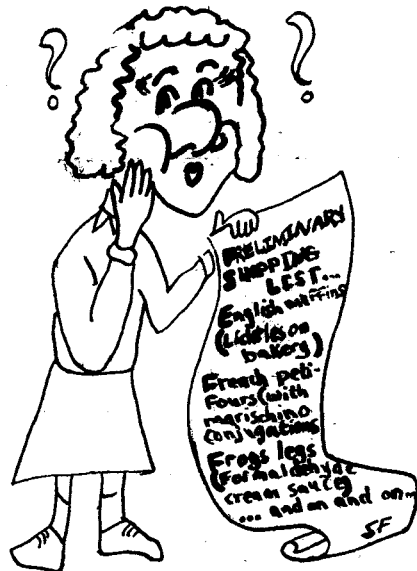 ? ?
PRELIMINARY
SHOPPING
LEST...
English muffins
(Littleson
bakery)
French peti-
Fours (with
marischino
conjugations
Frogs legs
(Formaldehyde
cream sauce)
... and on and on...
SF